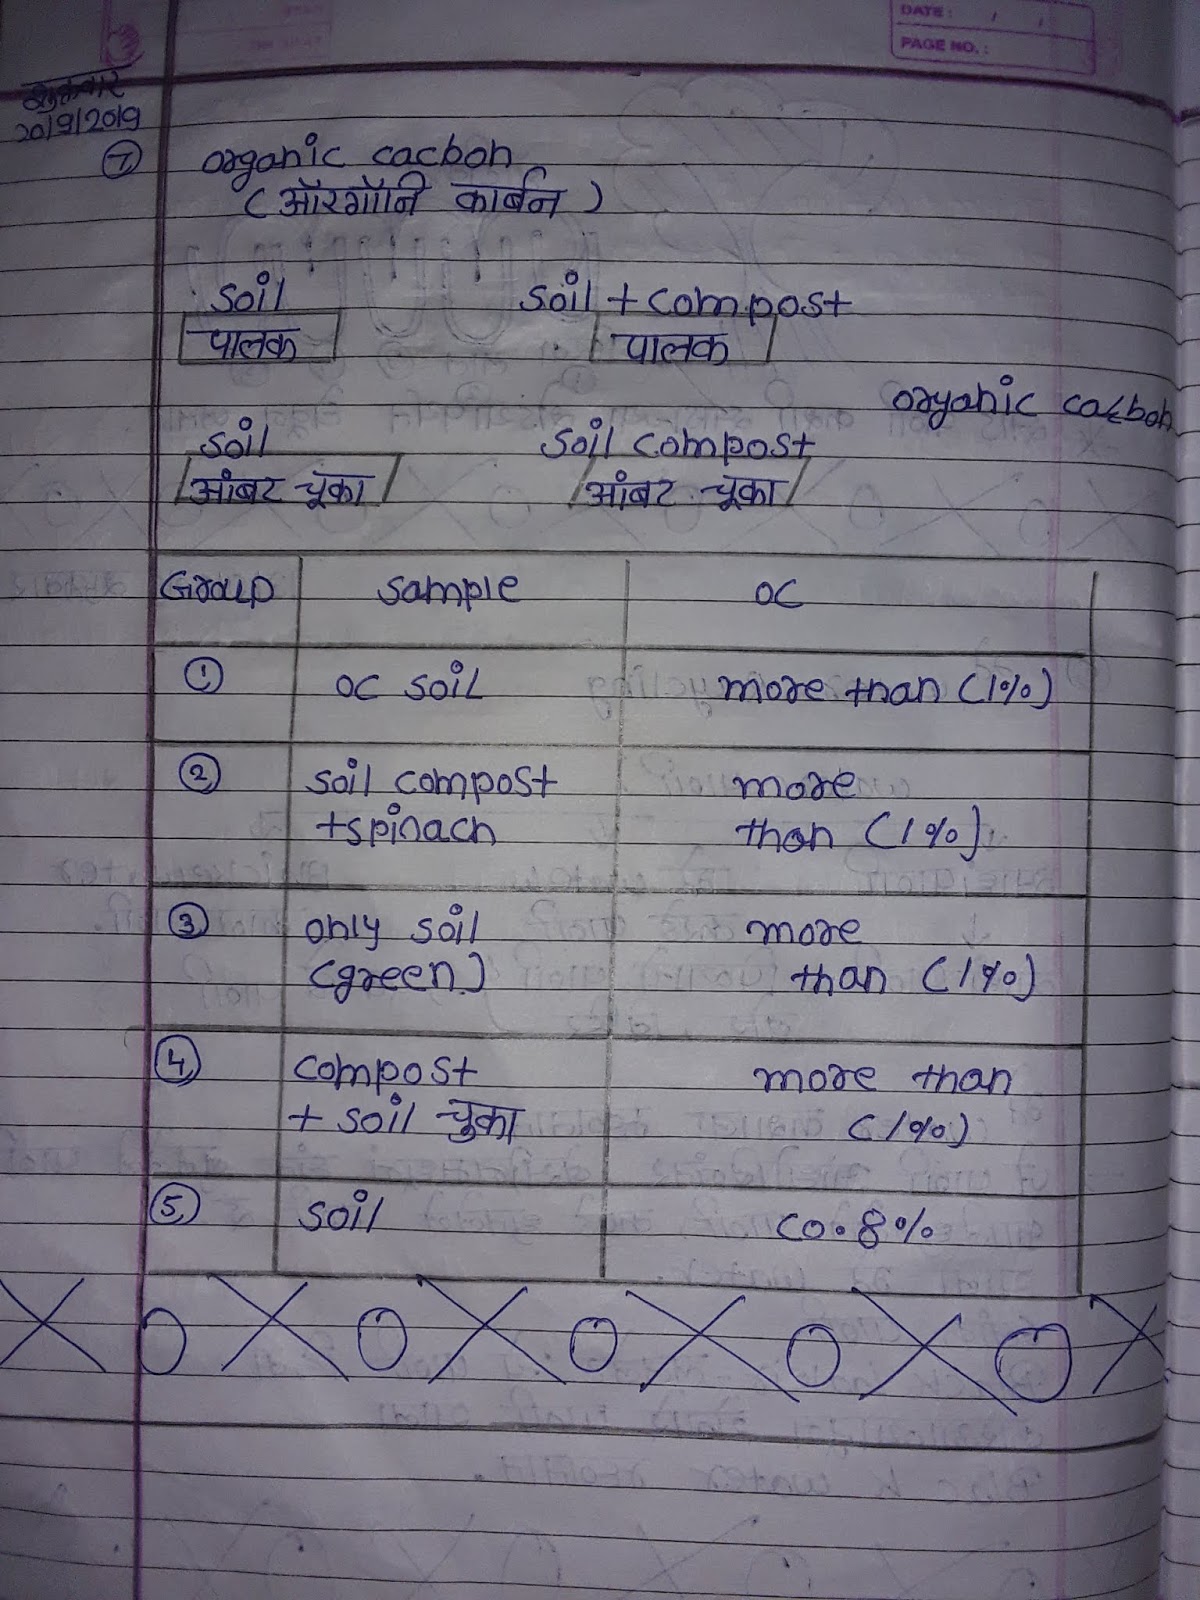 DATE: / /
PAGE NO.:
20/9/2019
7 organic cacbon
(ऑरगॉनि कार्बन)
soil soil + compost
पालक पालक
organic cacbon
soil soil compost
आंबट चूका आंबट चूका
Group sample OC
1 OC soil more than (1%)
2 soil compost more
+spinach than (1%)
3 only soil more
(green) than (1%)
4 compost more than
+ soil चुका (1%)
5 soil (0.8%